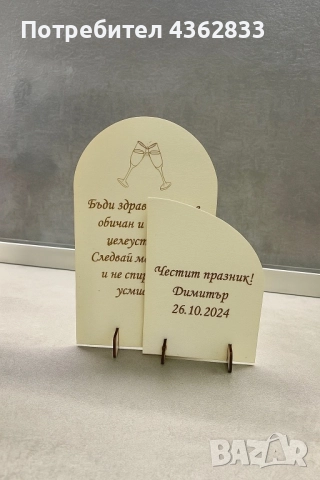 Потребител 4362833
Бъди здрав
обичан и
Следвай
и не
Честит празник!
Димитър
26.10.2024
BAZAR